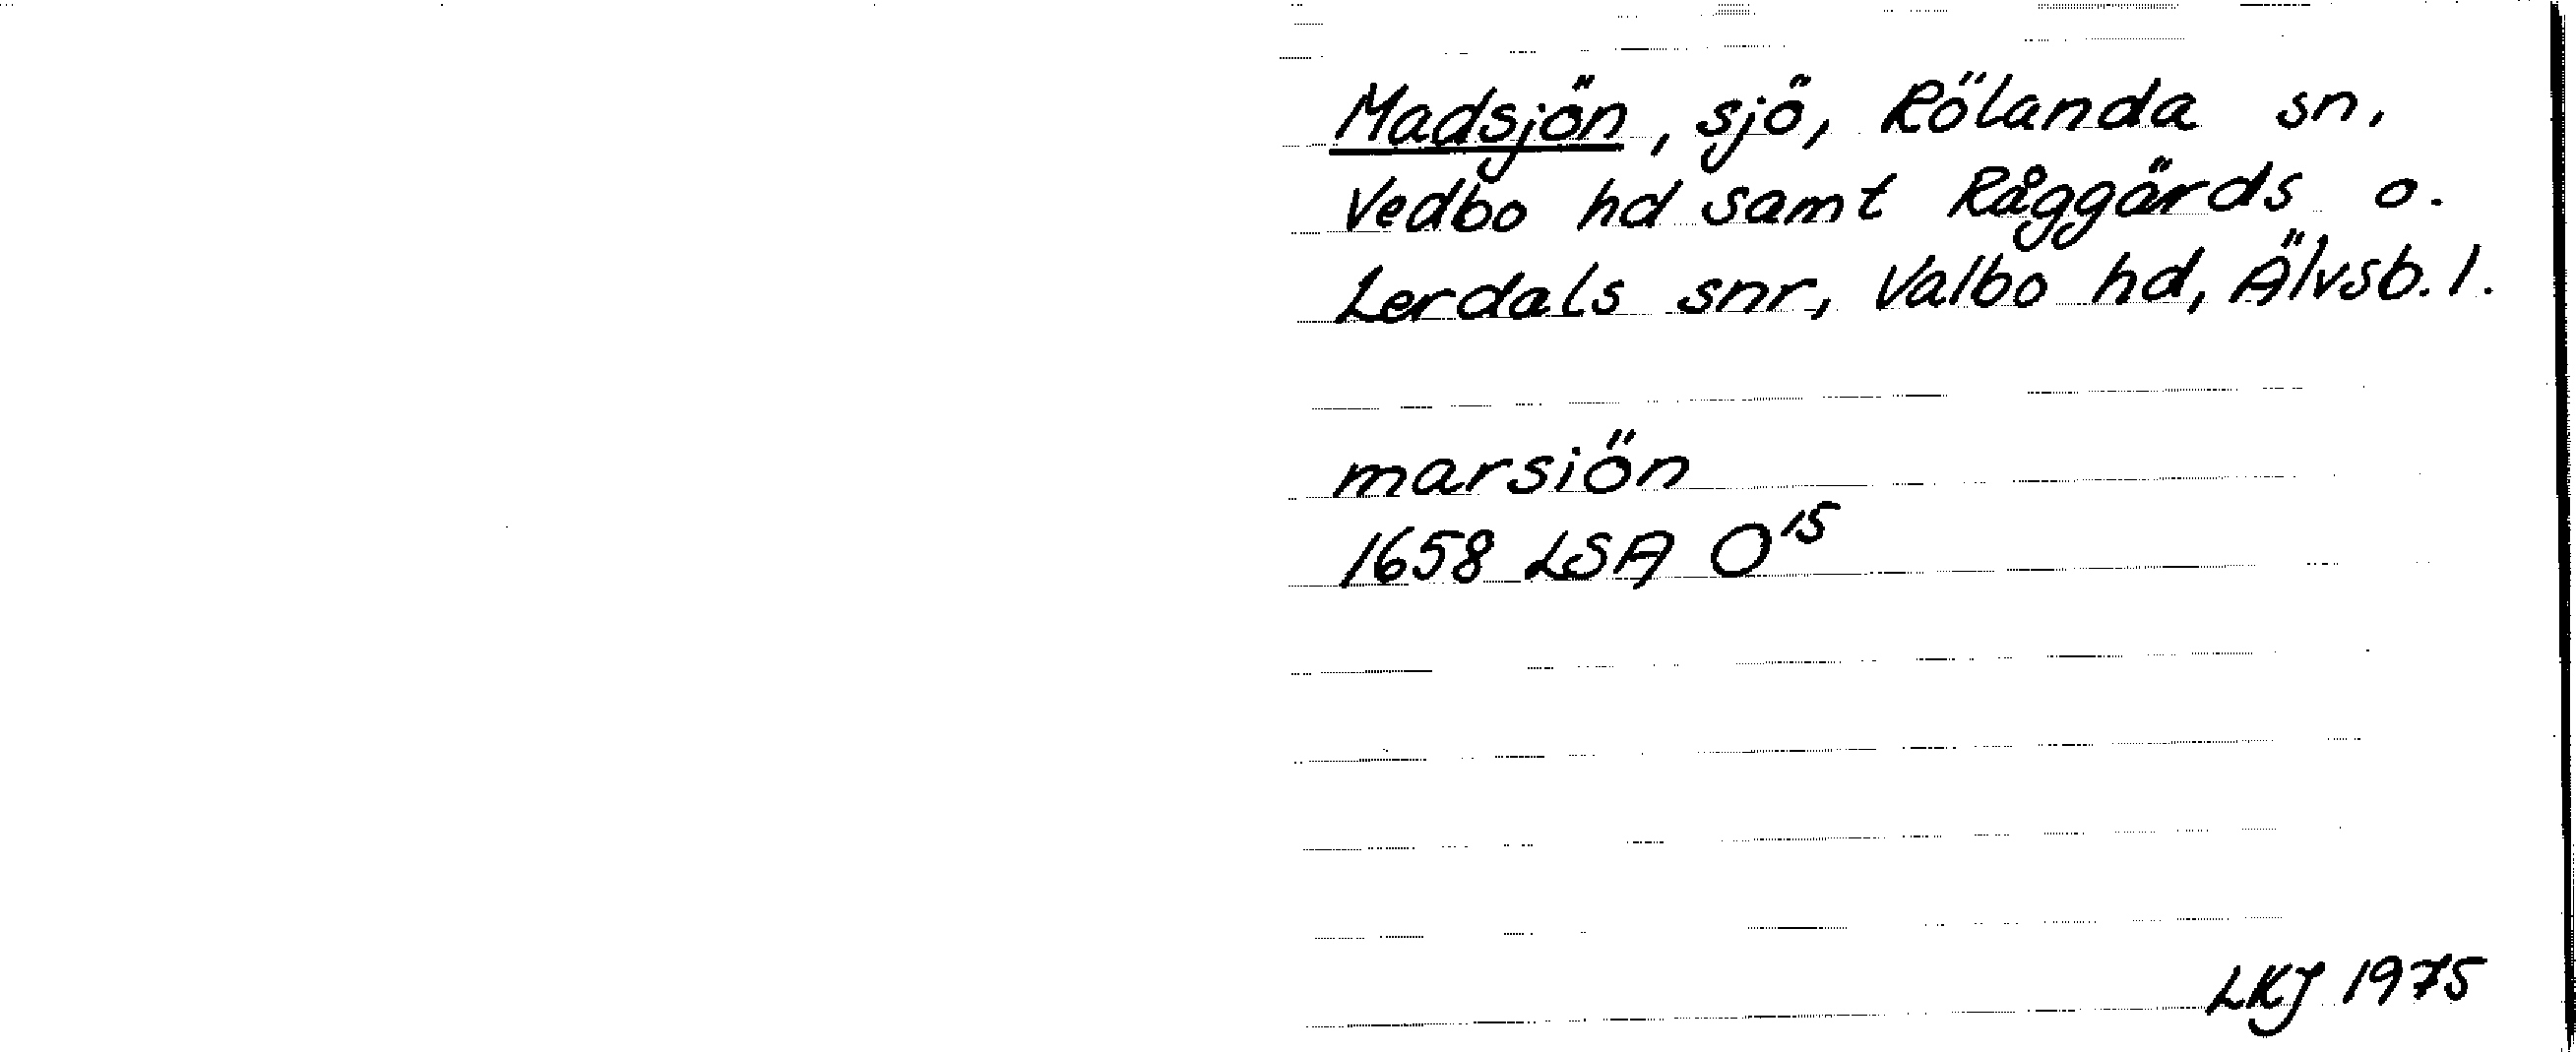 Madsjön, sjö, Rölanda sn,
Vedbo hd samt Råggärds o.
Lerdals snr, Valbo hd, Älvsb. l.
marsiön
1658 LSA O15
LKJ 1975